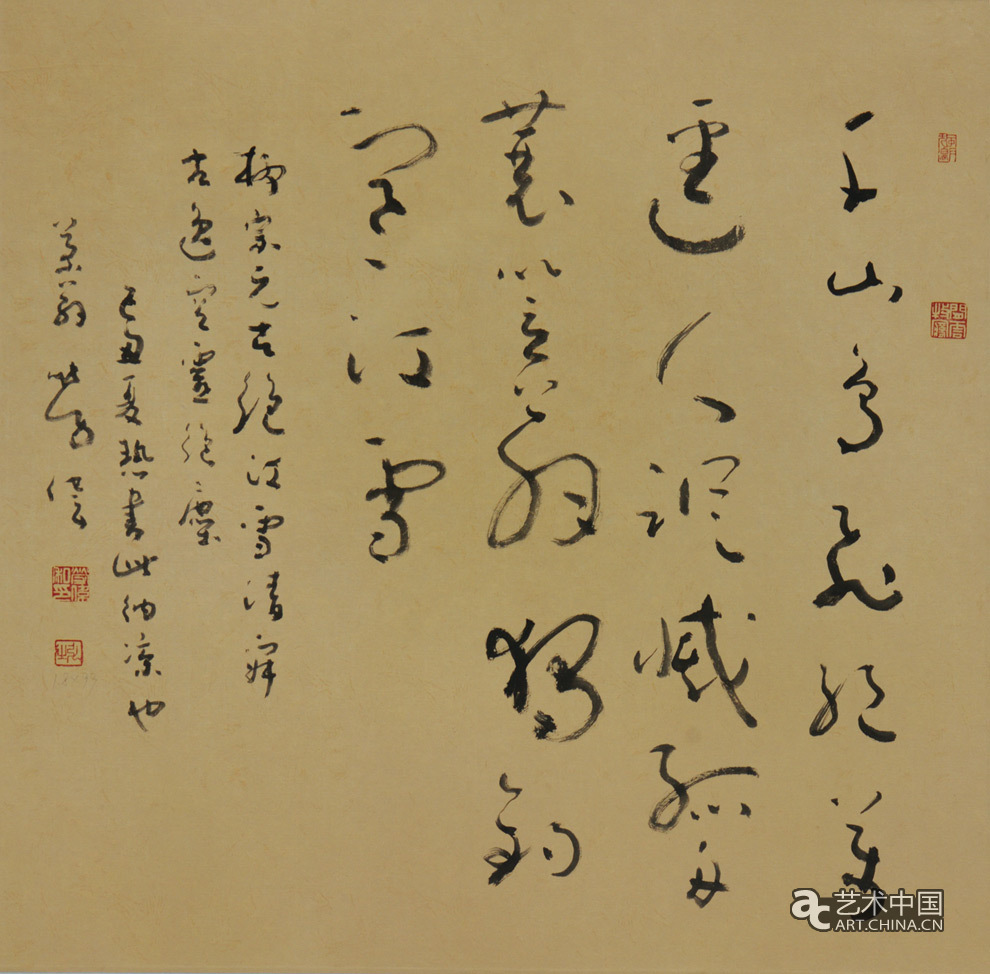 千山鳥飛絕萬
逕人蹤滅孤舟
蓑笠翁獨釣
寒江雪
柳宗元古絕江雪清
古逸空靈絕塵
己丑夏熱書此納涼也
翁
艺术中国
ART.CHINA.CN